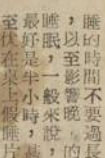 睡的時間不要過長
，以至影響晚　的
睡眠，一般來說，
最好是半小時，甚
至伏在桌上假睡片